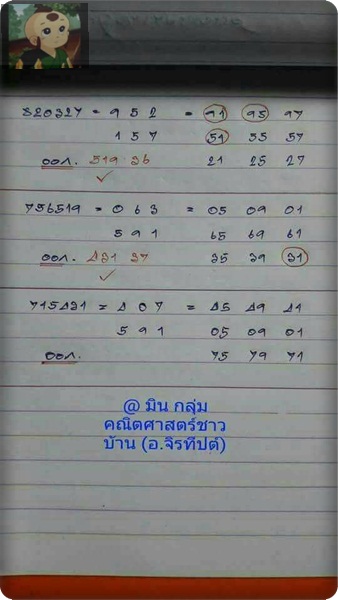 820327 = 9 5 2 = 91 95 97
1 5 7 51 55 57
ออก. 519 36 21 25 27
756519 = 0 6 3 = 05 09 01
5 9 1 65 69 61
ออก. 431 37 35 39 31
715431 = 4 0 7 = 45 49 41
5 9 1 05 09 01
ออก. 75 79 71
@ มิน กลุ่ม
คณิตศาสตร์ชาว
บ้าน (อ.จิรทีปต์)